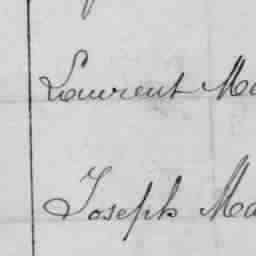 Laurent Ma
Joseph Ma